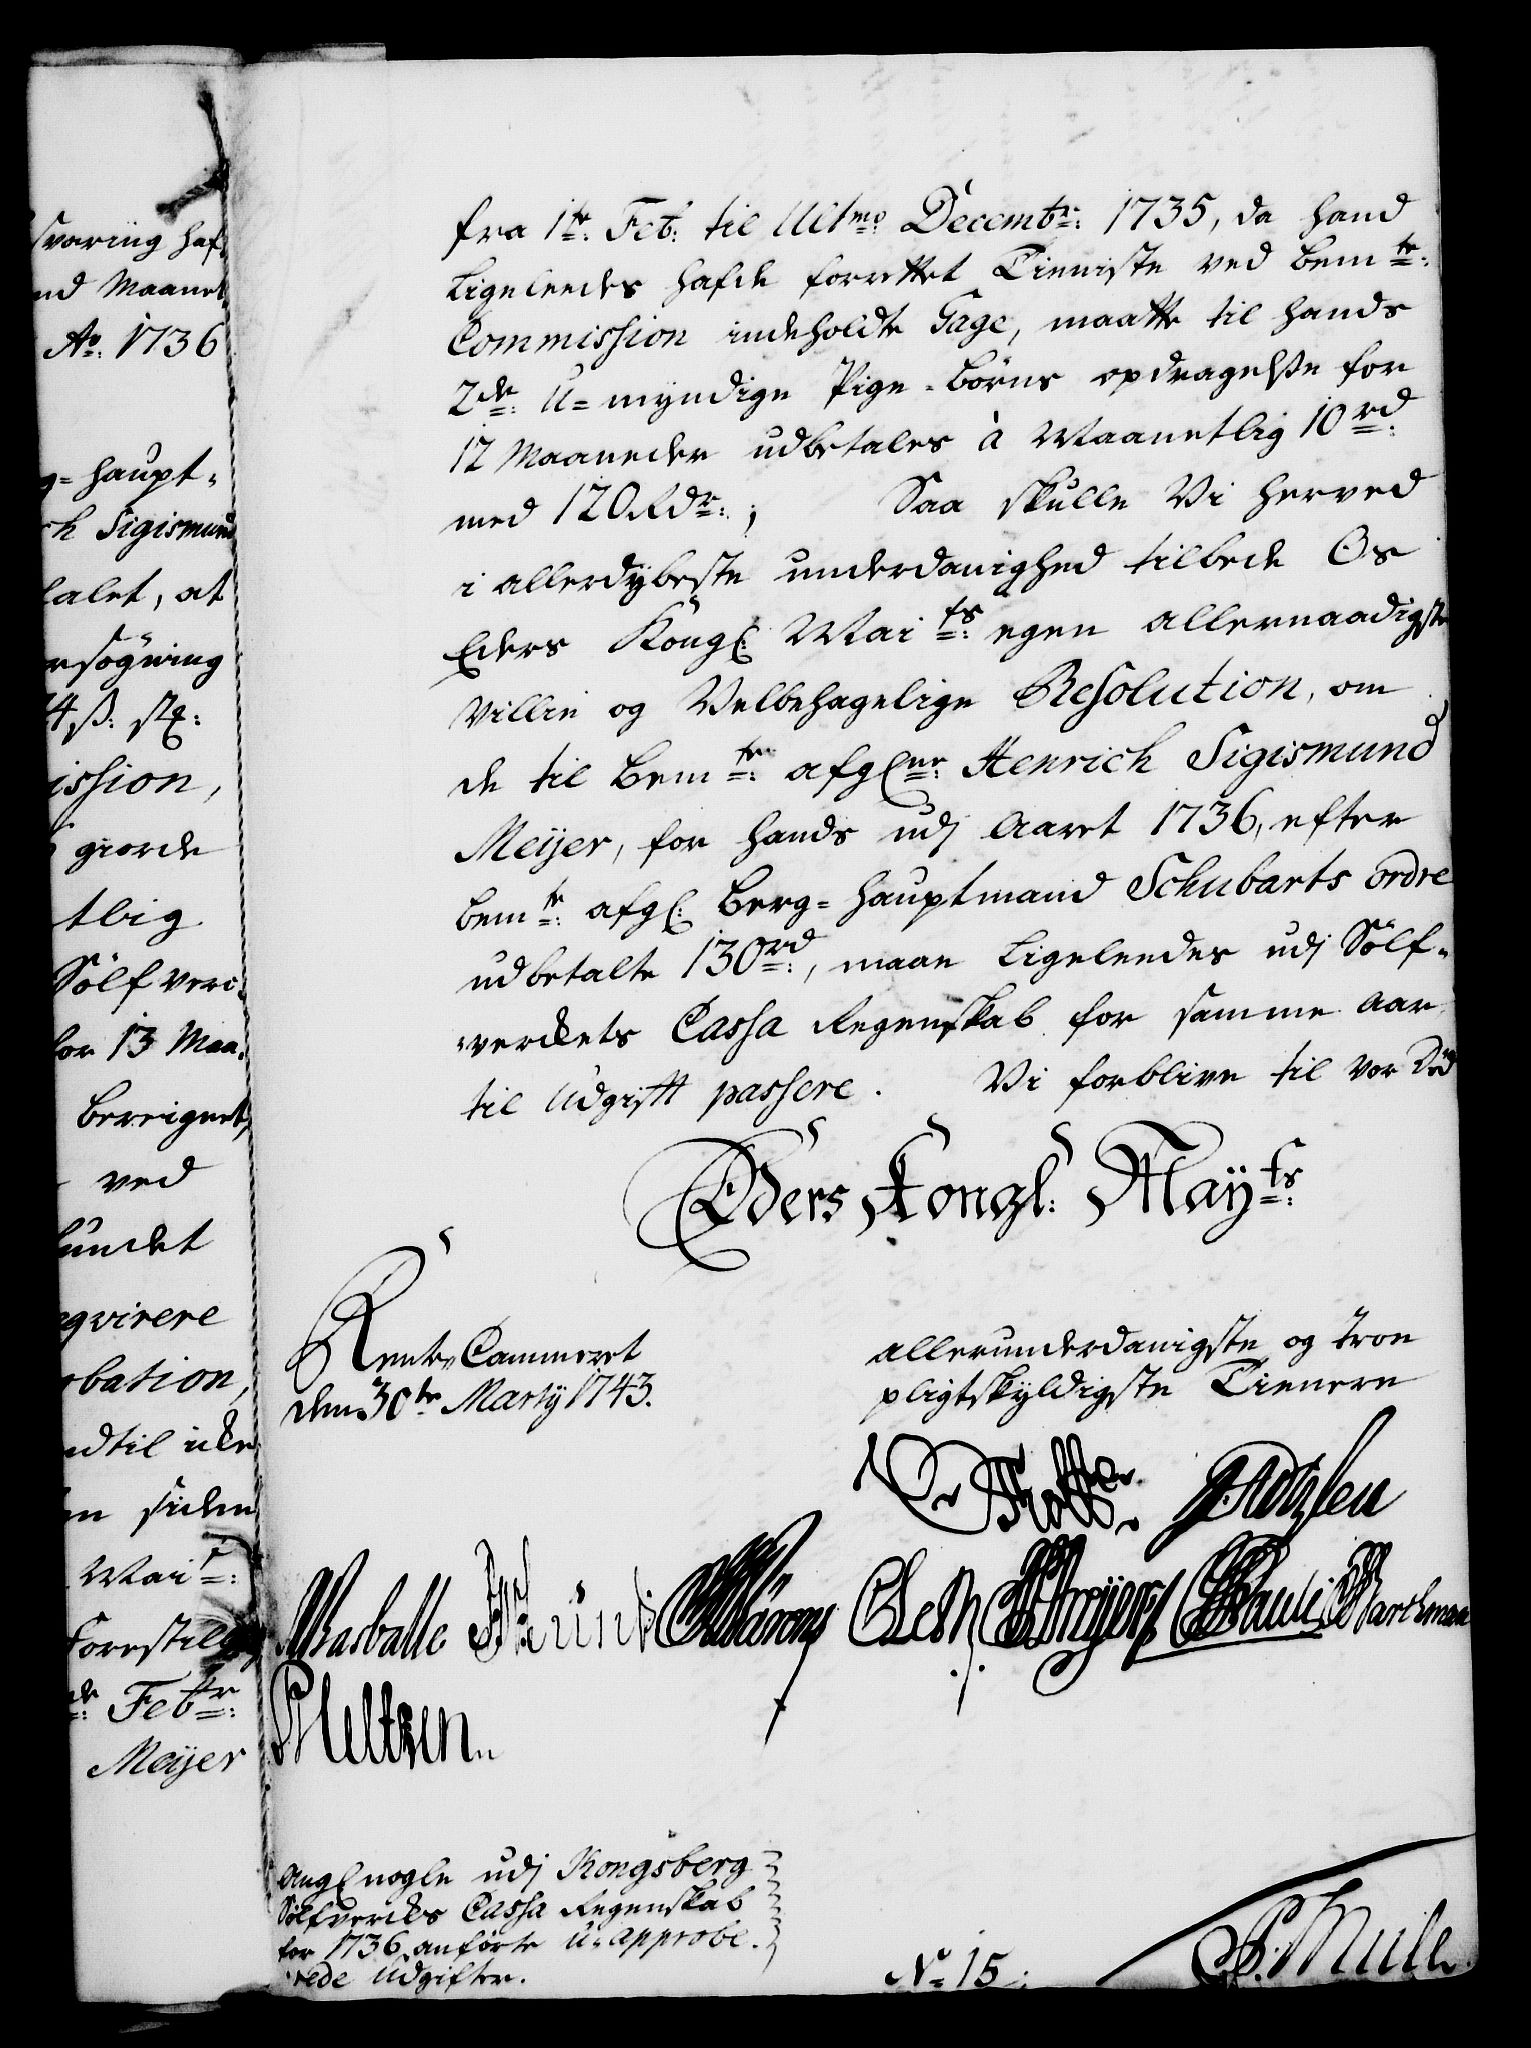 svaring haf
nd Maanet
Ao: 1736
g= haupt=
ch Sigismund
talet, at
ersögning
74 ß: sk:
ission,
giorde
tlig
Sölfverc
for 13 Maa
bereignet,
ved
fundet
eqvirere
obation,
indtil icke
en siden
Mait:
Forestill
de: Febtr:
Meyer
fra 1te: Feb: til Ultmo: Decembr: 1735, da hand
Ligeleedes hafde forrettet Tieniste ved bemte:
Commission indeholdte Gage, maatte til hands
2de: U=myndige Pige=børns opdragelse for
12 Maaneder udbetales à Maanetlig 10rd:
med 120 Rdr:; Saa skulle Vi herved
i allerdybeste underdanighed tilbede Os
Eders Kongl: Maits: egen allernaadigste
Villie og Velbehagelige Resolution, om
de til bemte: afgne: Henrich Sigismund
Meijer, for hands udj Aaret 1736, efter
bemte: afg: Berg=hauptmand Schubarts ordre
udbetalte 130rd:, maae Ligeleedes udj Sölf=
verckets Cassa Regenskab for samme Aar
til Udgift passere. Vi forblive til vor Död
Eders Kongl: Mayts:
Rente Cammeret
den 30te Martij 1743.
allerunderdanigste og troe
pligtskyldigste Tienere
Holtzen
Basballe
Pauli Wartmann
Neltzen
Ang nogle udj Kongsberg
Sölfvercks Cassa Regenskab
for 1736 anförte U=approbe=
rede Udgifter.
No 15.
P. Mule